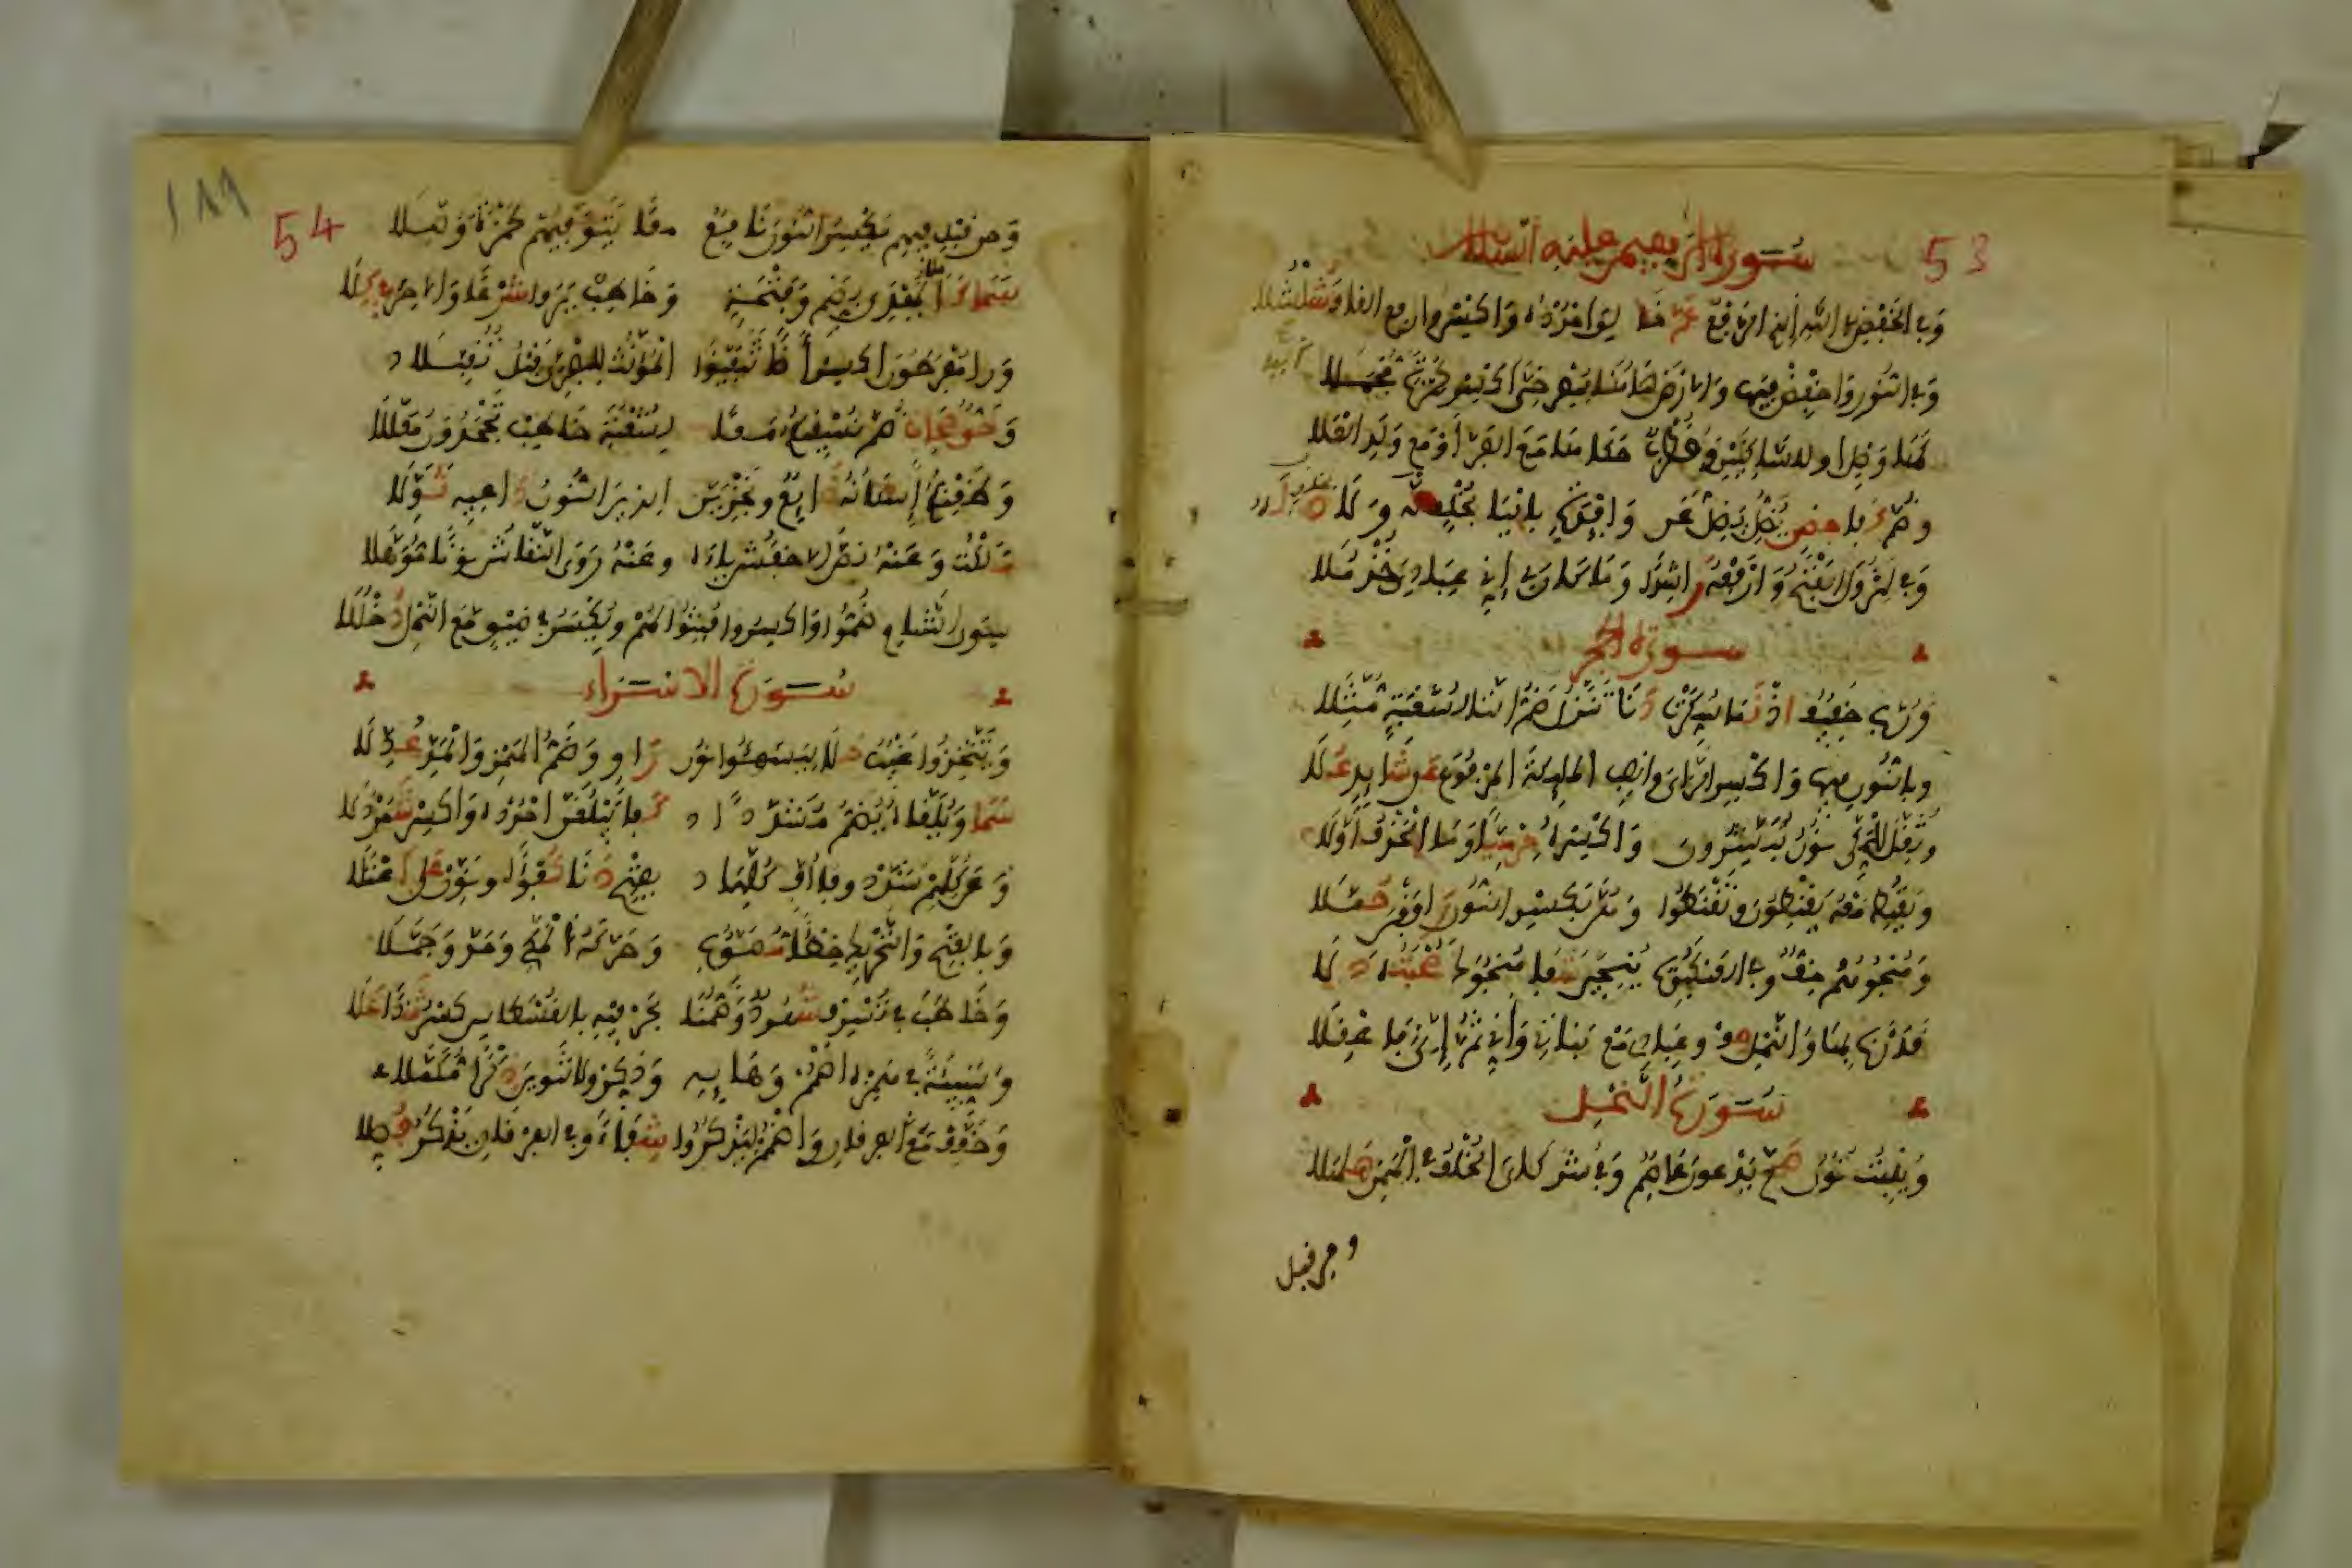 53
سورة ابراهيم عليه السلام
وفي الخفض في الله الذي الرفع عم خا لق امدده واكسر وارفع القاف شلشلا
وفي النور واخفض فيها والارض هاهنا مصرخي اكسر لحمزة مجملا
كها وصل او للساكنين وقطرب حكاها مع الفراء مع ولد العلا
وضم كفا حصن يضل يضل عن وافئدة باليا بخلف له ولا
وفي لتزول الفتح وارفعه راشدا وما كان لي اني عبادي خذ ملا
سورة الحجر
ورب خفيف اذ نما سكرت دنا تنزل ضم التا لشعبة مثلا
وبالنون فيها واكسر الزاي وانصب الملئكة المرفوع عن شايد علا
وثقل للمكي نون تبشرون واكسره حرميا وما الحذف اولا
ويقنط معه يقنطون وتقنطوا وهن بكسر النون رافقن حملا
ومنجوهم خف وفي العنكبوت ننجين شفا منجوك صحبته دلا
قدرنا بها والنمل صف وعبادي مع بناتي واني ثم اني فاعقلا
سورة النحل
وينبت نون صح يدعون عاصم وفي شركاي الخلف في الهمز هلهلا
ومن قبل
54
١٨٩
ومن قبل فيهم يكسر النون نافع معا يتوفيهم لحمزة وصلا
سما كاملا يهدي بضم وفتحة وخاطب تروا شرعا والاخر في كلا
ورا مفرطون اكسر اضا يتفيؤا المؤنث للبصري قبل تقبلا
وحق صحاب ضم نسقيكم معا لشعبة خاطب يجحدون معللا
وظعنكم اسكانه ذايع ونجزين الذين النون داعيه نولا
ملكت وعنه نص الاخفش ياءه وعنه روى النقاش نونا موهلا
سوى الشام ضموا واكسروا فتنوا لهم ويكسر في ضيق مع النمل دخللا
سورة الاسراء
ويتخذوا غيب حلا ليسوء نون راو وضم الهمز والمد عدلا
سما ويلقاه يضم مشددا كفا يبلغن امدده واكسر شمردلا
وعن كلهم شدد وفا اف كلها بفتح دنا كفؤا ونون على اعتلا
وبالفتح والتحريك خطأ مصوب وحركه المكي ومد وجملا
وخاطب في يسرف شهود وضمنا بحرفيه بالقسطاس كسر شذا علا
وسيئة في همزه اضمم وهايه وذكر ولا تنوين ذكرا مكملا
وخفف مع الفرقان واضمم ليذكروا شفاء وفي الفرقان يذكر فصلا